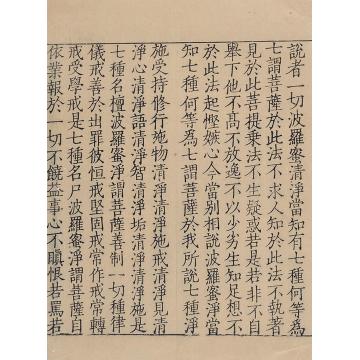 說者一切波羅蜜清淨當知有七種何等為
七謂菩薩於此法不求人知於此法不執著
見於此菩提乘法不生疑惑若是若非不自
舉下他不高不放逸不以少劣生知足想不
於此法起慳嫉心今當別相說波羅蜜淨當
知七種何等為七謂菩薩於我所說七種淨
施受持修行施物清淨清淨施戒清淨見清
淨心清淨語清淨智清淨垢清淨清淨施是
七種名檀波羅蜜淨謂菩薩善制一切種律
儀戒善於出罪彼恒戒堅固戒常作戒常轉
戒受學戒是七種名尸波羅蜜淨謂菩薩自
依業報於一切不饒益事心不瞋恨若罵若